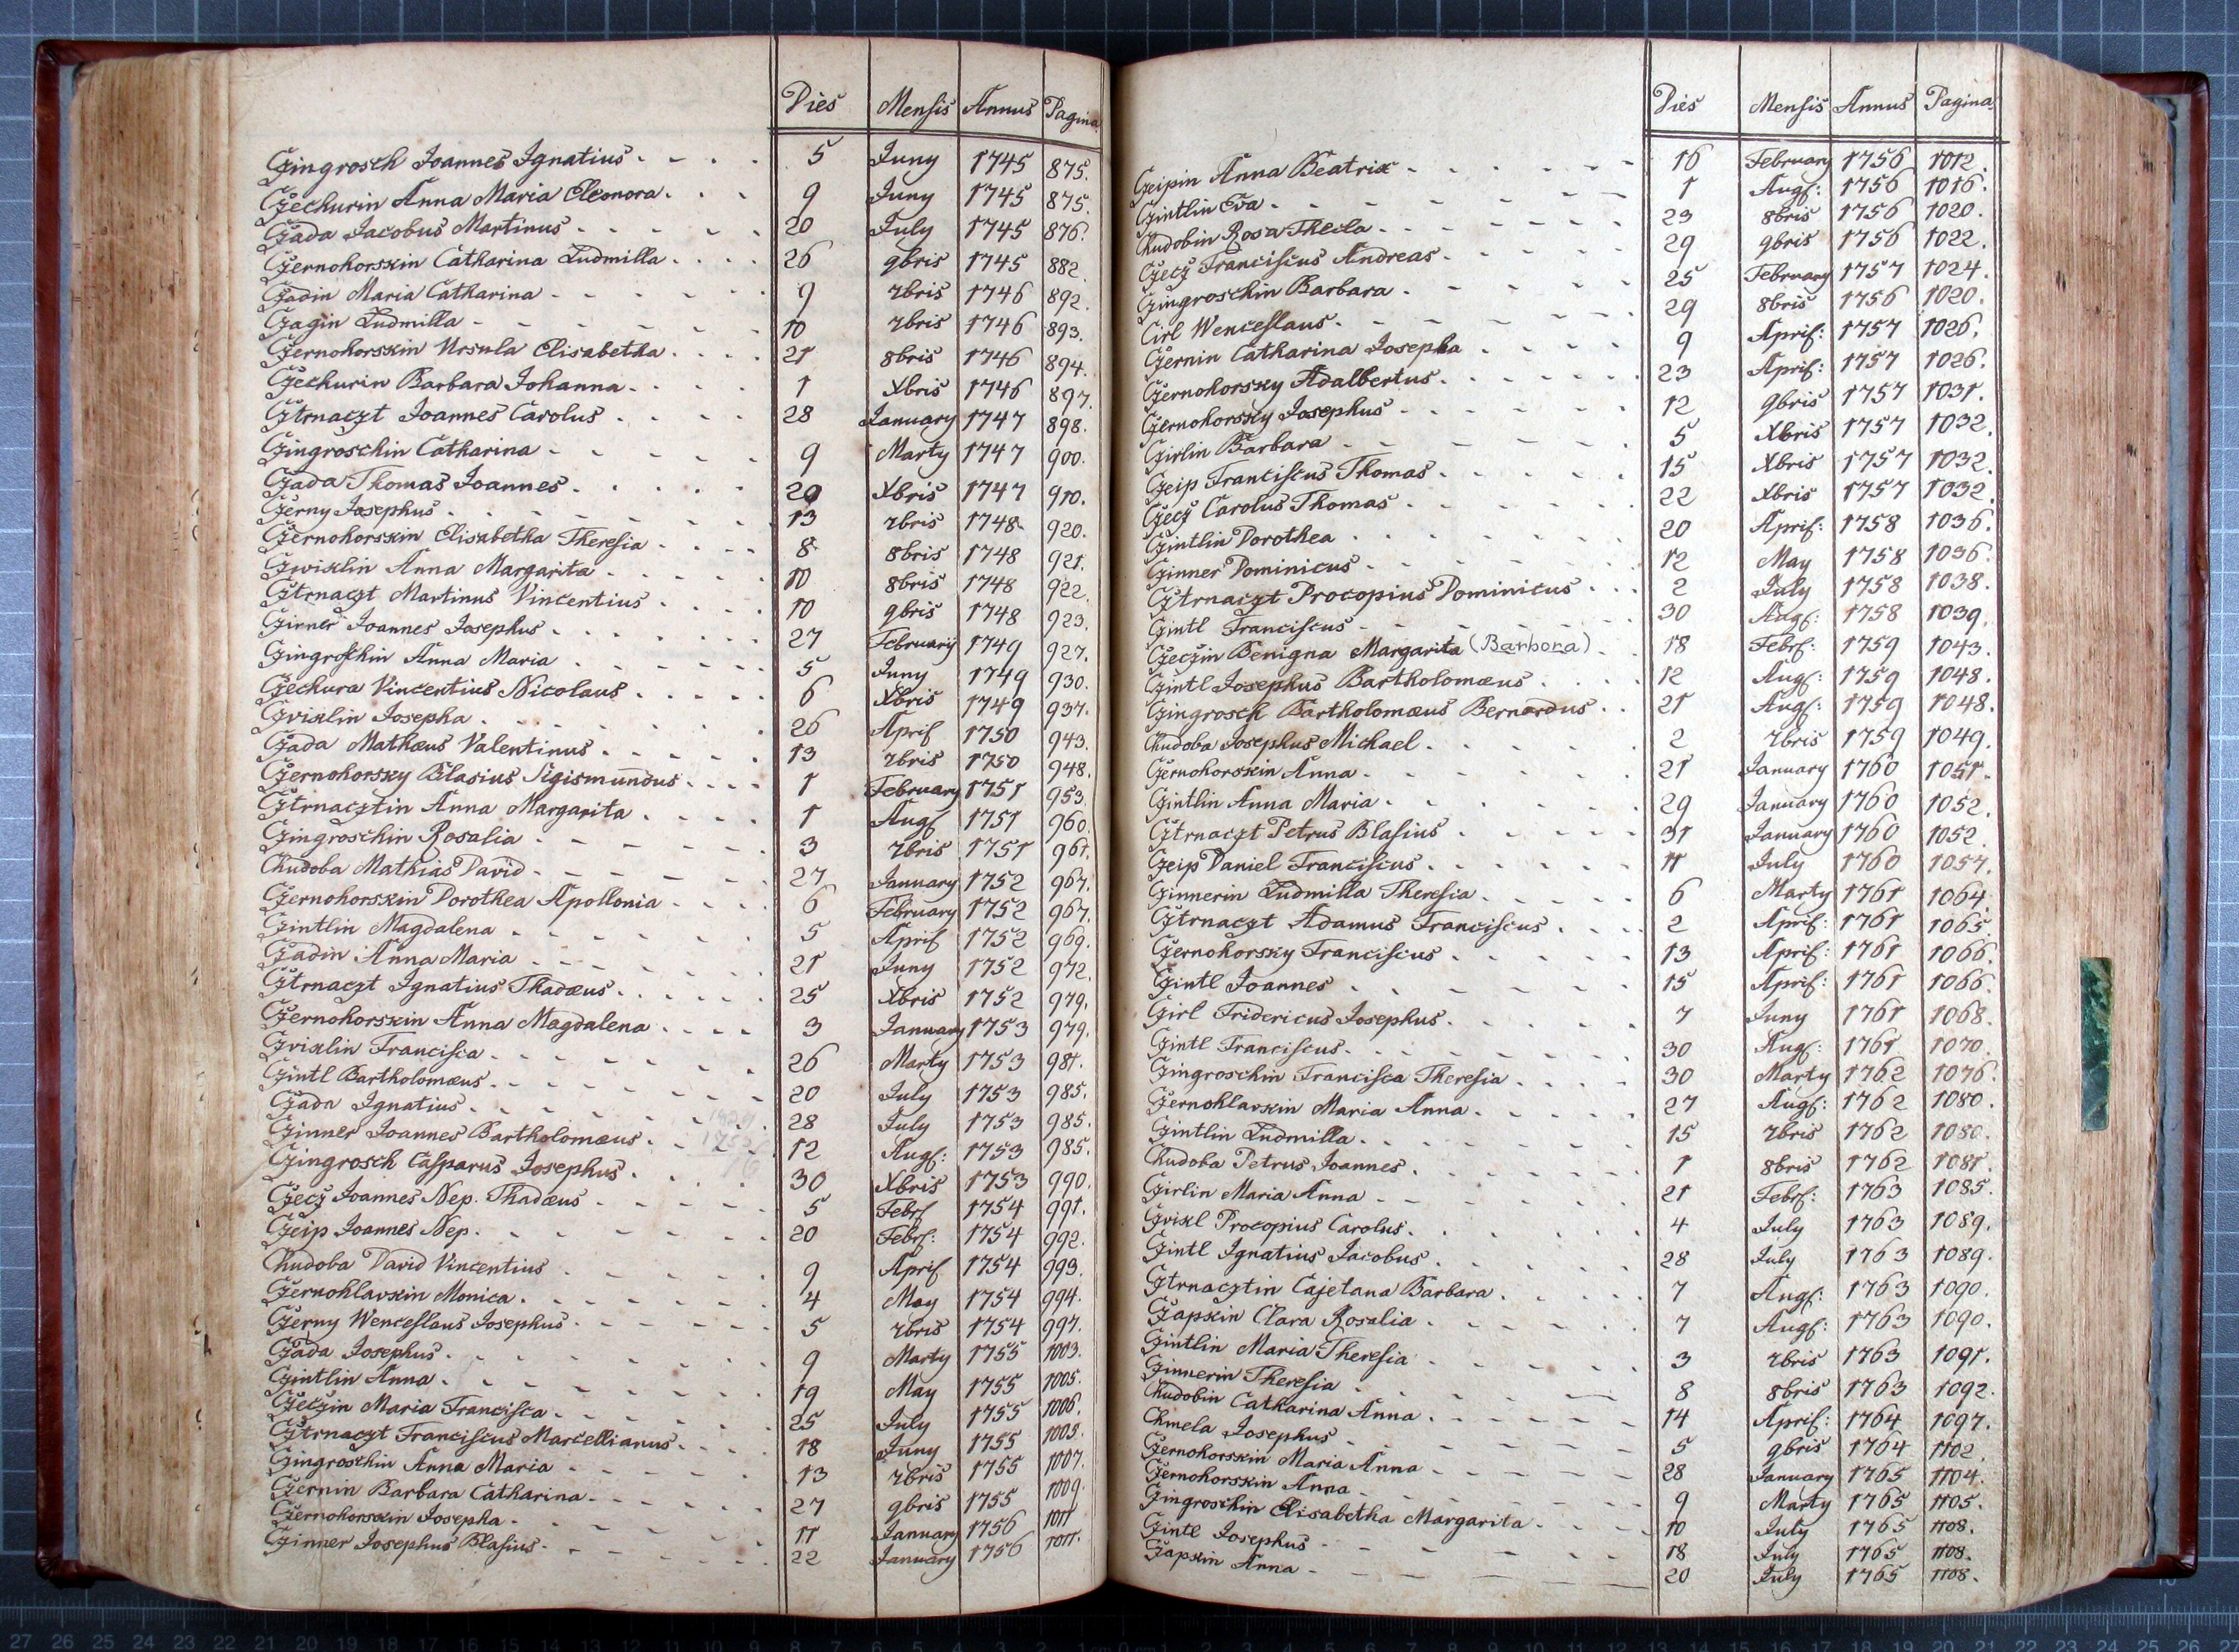 Dies Mensis Annus Pagina
Czingrosch Joannes Ignatius 5 Juny 1745 875.
Czechurin Anna Maria Eleonora 9 Juny 1745 875.
Czada Jacobus Martinus 20 July 1745 876.
Czernohorskin Catharina Ludmilla 26 9bris 1745 882
Czadin Maria Catharina 9 7bris 1746 892.
Czagin Ludmilla 10 7bris 1746 893.
Czernohorskin Ursula Elisabetha 21 8bris 1746 894.
Czechurin Barbara Johanna 1 Xbris 1746 897.
Cztrnaczt Joannes Carolus 28 January 1747 898.
Czingroschin Catharina 9 Marty 1747 900.
Czada Thomas Joannes 20 Xbris 1747 910.
Czerny Josephus 13 7bris 1748 920.
Czernohorskin Elisabetha Theresia 8 8bris 1748 921.
Czwixlin Anna Margarita 10 8bris 1748 922.
Cztrnaczt Martinus Vincentius 10 9bris 1748 923.
Czinner Joannes Josephus 27 February 1749 927.
Czingroschin Anna Maria 5 Juny 1749 930.
Czechura Vincentius Nicolaus 6 Xbris 1749 937.
Czvixlin Josepha 26 April 1750 943.
Czada Mathæus Valentinus 13 7bris 1750 948.
Czernohorsky Blasius Sigismundus 1 February 1751 953.
Cztrnacztin Anna Margarita 1 Aug 1751 960.
Czingroschin Rosalia 3 7bris 1751 961.
Chudoba Mathias David 27 January 1752 967.
Czernohorskin Dorothea Apollonia 6 February 1752 967.
Czintlin Magdalena 5 April 1752 969.
Czadin Anna Maria 21 Juny 1752 972.
Cztrnaczt Ignatius Thadæus 25 Xbris 1752 979.
Czernohorskin Anna Magdalena 3 January 1753 979.
Czvixlin Francisca 26 Marty 1753 981.
Czintl Bartholomæus 20 July 1753 985.
Czada Ignatius 28 July 1753 985.
Czinner Joannes Bartholomæus 12 Aug: 1753 985.
Czingrosch Casparus Josephus 30 Xbris 1753 990.
Czecz Joannes Nep. Thadæus 5 Febr 1754 991.
Czeip Joannes Nep. 20 Febr: 1754 992.
Chudoba David Vincentius 9 April 1754 993.
Czernohlavkin Monica 4 May 1754 994.
Czerny Wenceslaus Josephus 5 7bris 1754 997.
Czada Josephus 9 Marty 1755 1003.
Czintlin Anna 19 May 1755 1005.
Czeczin Maria Francisca 25 July 1755 1006.
Cztrnaczt Franciscus Marcellianus 18 Juny 1755 1005.
Czingroschin Anna Maria 13 7bris 1755 1007.
Czernin Barbara Catharina 27 9bris 1755 1009.
Czernohorskin Josepha 11 January 1756 1011
Czinner Josephus Blasius 22 January 1756 1011.
Dies Mensis Annus Pagina
Czeipin Anna Beatrix 16 February 1756 1012.
Czintlin Eva 1 Aug: 1756 1016.
Chudobin Rosa Thecla 23 8bris 1756 1020.
Czecz Franciscus Andreas 29 9bris 1756 1022.
Czingroschin Barbara 25 February 1757 1024.
Cirl Wenceslaus 29 8bris 1756 1020.
Czernin Catharina Josepha 9 April: 1757 1026.
Czernohorsky Adalbertus 23 April: 1757 1026.
Czernohorsky Josephus 12 9bris 1757 1031.
Czirlin Barbara 5 Xbris 1757 1032.
Czeip Franciscus Thomas 15 Xbris 1757 1032.
Czecz Carolus Thomas 22 Xbris 1757 1032.
Czintlin Dorothea 20 April: 1758 1036.
Czinner Dominicus 12 May 1758 1036.
Cztrnaczt Procopius Dominicus 2 July 1758 1038.
Czintl Franciscus 30 Aug: 1758 1039.
Czeczin Benigna Margarita (Barbora) 18 Febr: 1759 1043.
Czintl Josephus Bartholomæus 12 Aug: 1759 1048.
Czingrosch Bartholomæus Bernardus 21 Aug: 1759 1048.
Chudoba Josephus Michael 2 7bris 1759 1049.
Czernohorskin Anna 21 January 1760 1051.
Czintlin Anna Maria 29 January 1760 1052.
Cztrnaczt Petrus Blasius 31 January 1760 1052
Czeip Daniel Franciscus 11 July 1760 1057.
Czinnerin Ludmilla Theresia 6 Marty 1761 1064.
Cztrnaczt Adamus Franciscus 2 April: 1761 1065.
Czernohorsky Franciscus 13 April: 1761 1066.
Czintl Joannes 15 April: 1761 1066.
Czirl Fridericus Josephus 7 Juny 1761 1068.
Czintl Franciscus 30 Aug: 1761 1070.
Czingroschin Francisca Theresia 30 Marty 1762 1076.
Czernohlavkin Maria Anna 27 Aug: 1762 1080.
Czintlin Ludmilla 15 7bris 1762 1080.
Chudoba Petrus Joannes 1 8bris 1762 1081.
Czirlin Maria Anna 21 Febr: 1763 1085.
Czvixl Procopius Carolus 4 July 1763 1089.
Czintl Ignatius Jacobus 28 July 1763 1089.
Cztrnacztin Cajetana Barbara 7 Aug: 1763 1090.
Czapkin Clara Rosalia 7 Aug: 1763 1090.
Czintlin Maria Theresia 3 7bris 1763 1091.
Czinnerin Theresia 8 8bris 1763 1092.
Chudobin Catharina Anna 14 April: 1764 1097.
Chmela Josephus 5 9bris 1764 1102.
Czernohorskin Maria Anna 28 January 1765 1104.
Czernohorskin Anna 9 Marty 1765 1105.
Czingroschin Elisabetha Margarita 10 July 1765 1108.
Czintl Josephus 18 July 1765 1108.
Czapkin Anna 20 July 1765 1108.